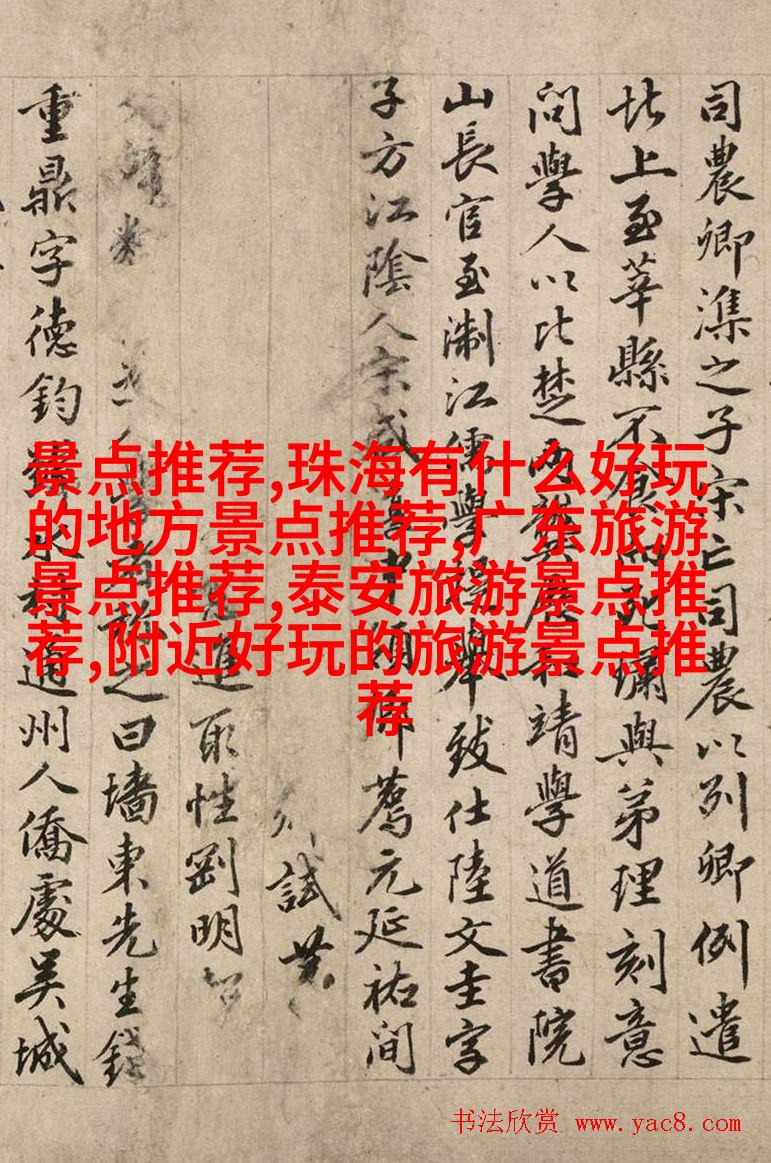 司農卿潗之子宋亡司農以列卿例遣
北上至莘縣不食死璛與弟理刻意
問學人以比楚两龔靖學道書院
山長官至淛江儒學舉致仕陸文圭字
子方江陰人宋咸中領薦元延祐間
試
進取性剛明
之曰墻東先生錢
重鼎字德鈞水村通州人僑處吴城
景点推荐,珠海有什么好玩
的地方景点推荐,广东旅游
景点推荐,泰安旅游景点推
荐,附近好玩的旅游景点推
荐
书法欣赏 www.yac8.com